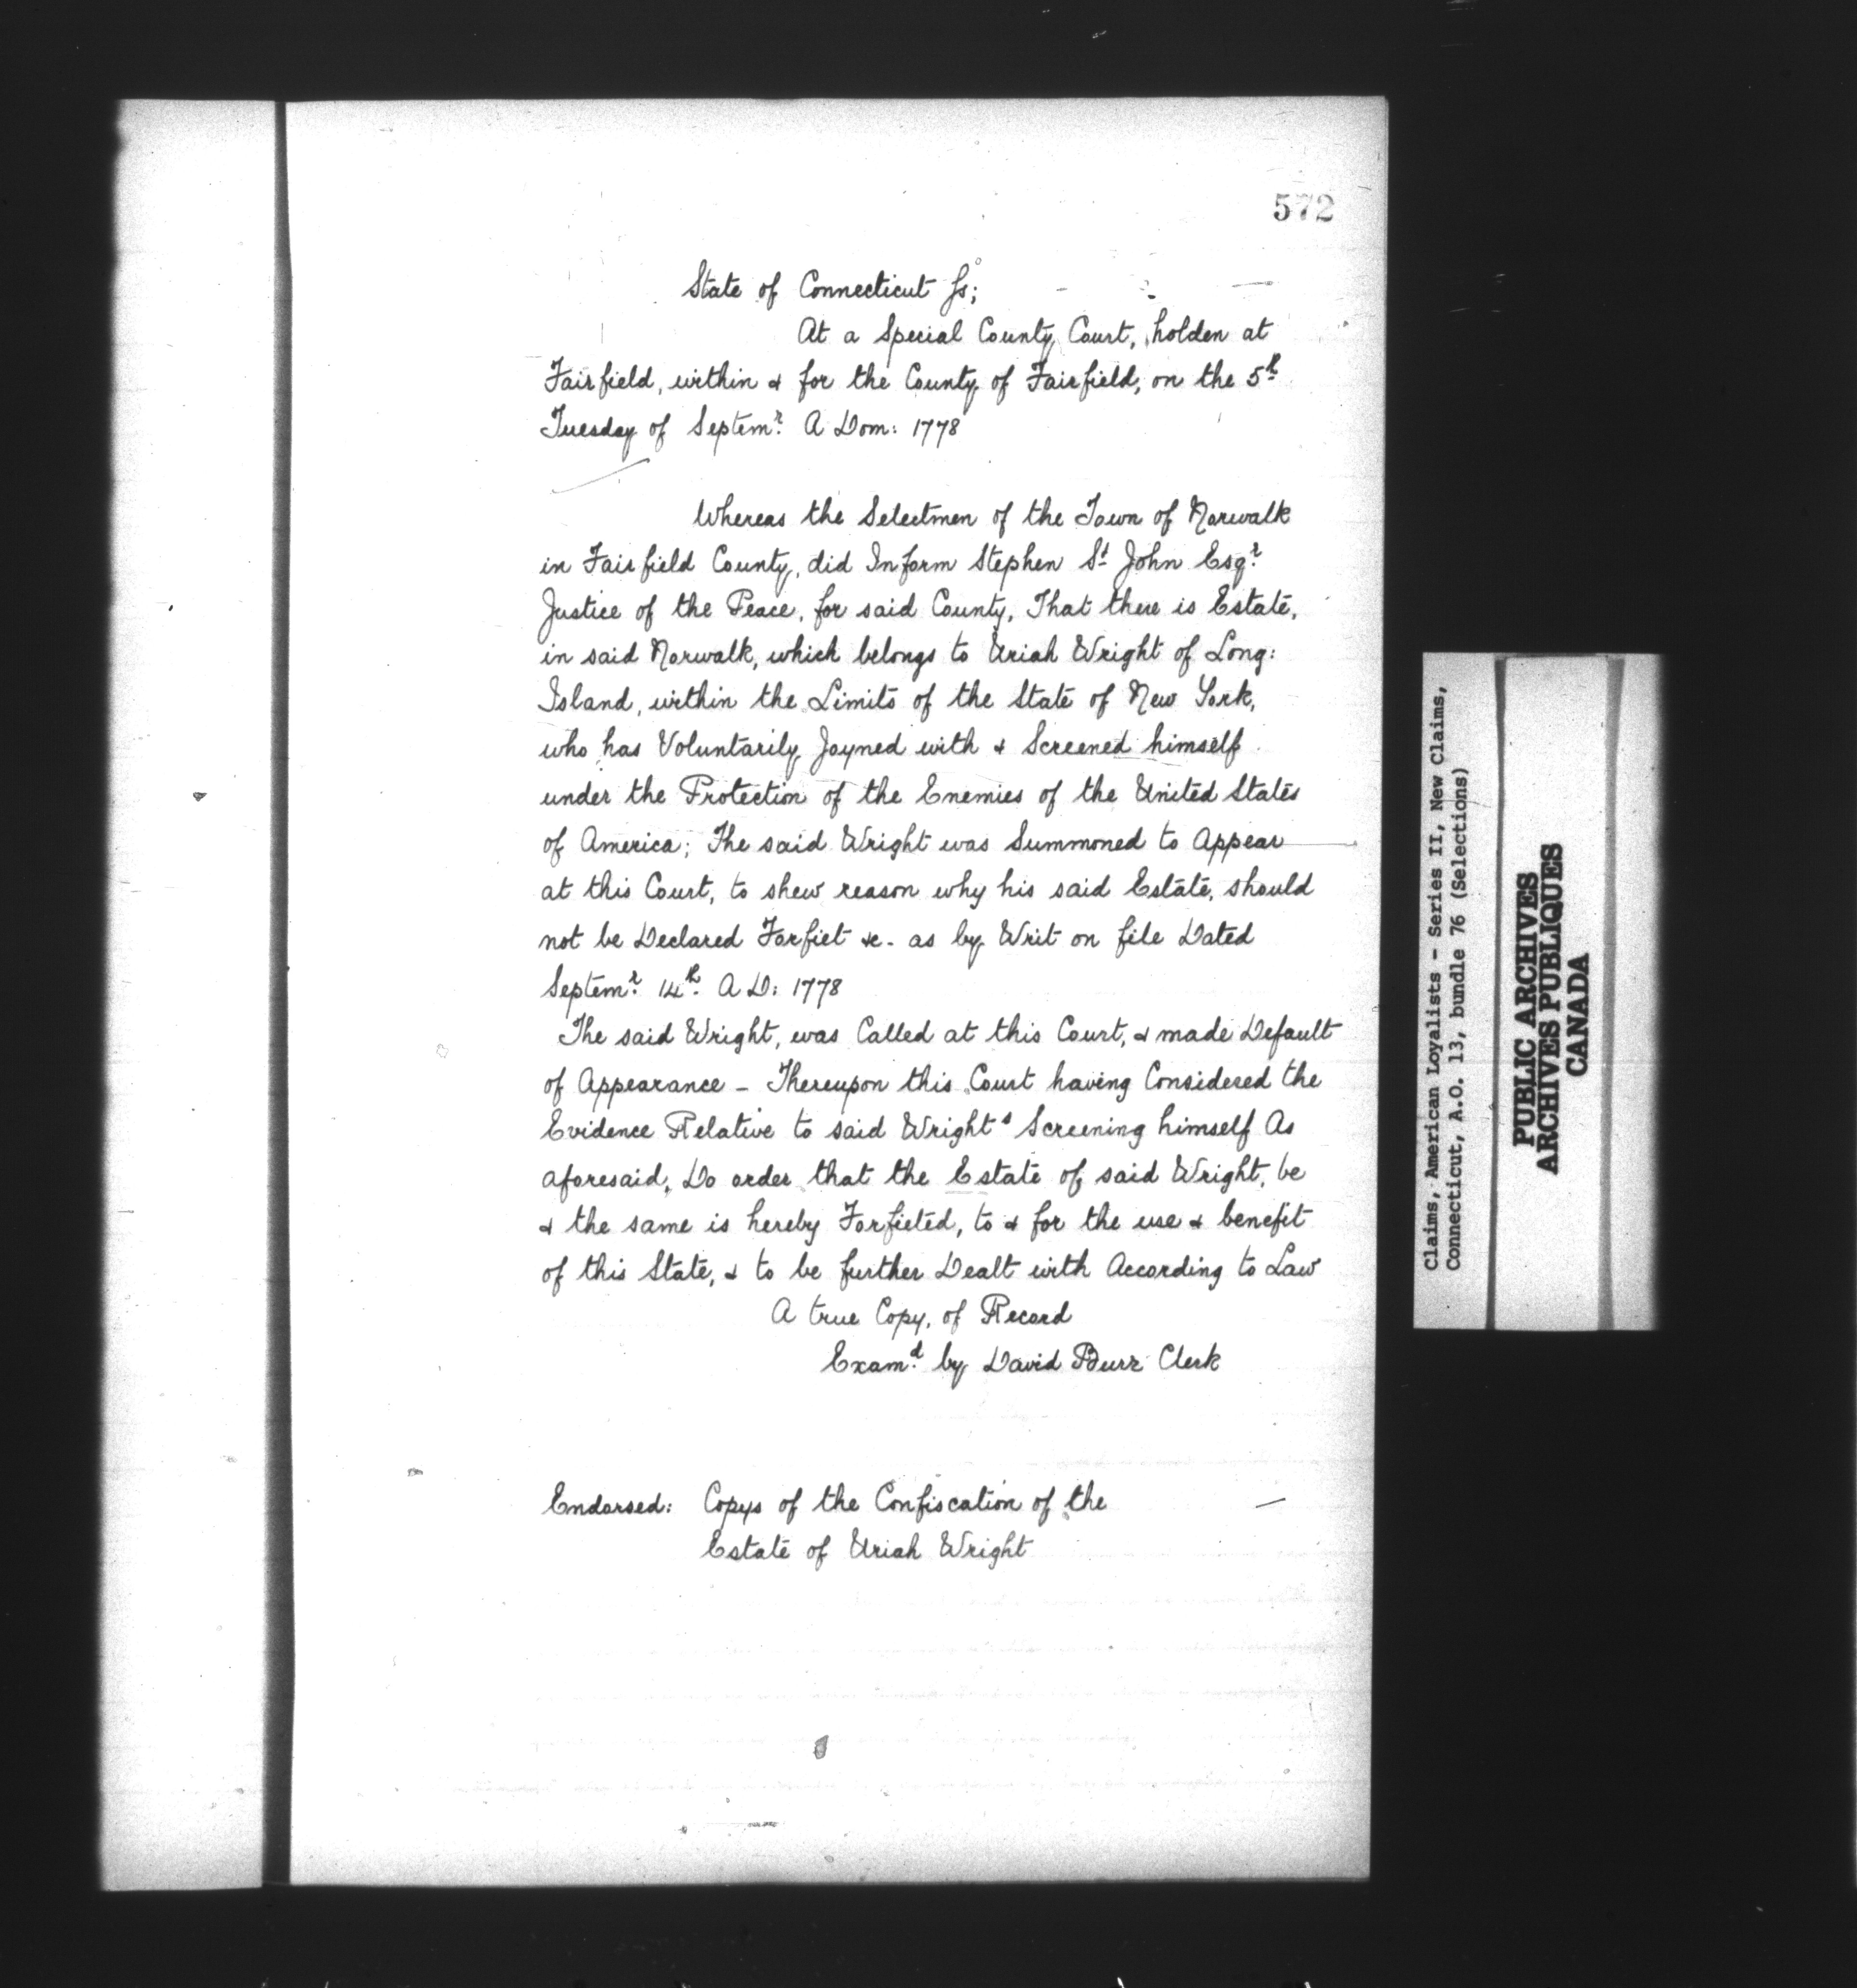 572
State of Connecticut Ss;
At a Special County Court, holden at
Fairfield, within & for the County of Fairfield, on the 5th
Tuesday of Septemr. A Dom: 1778
Whereas the Selectmen of the Town of Norwalk
in Fairfield County, did Inform Stephen St John Esqr.
Justice of the Peace, for said County, That there is Estate,
in said Norwalk, which belongs to Uriah Wright of Long:
Island, within the Limits of the State of New York,
who has Voluntarily Joyned with & Screened himself
under the Protection of the Enemies of the United States
of America; The said Wright was Summoned to Appear
at this Court, to shew reason why his said Estate, should
not be Declared Forfiet &c. as by Writ on file Dated
Septemr. 14th. A D: 1778
The said Wright, was Called at this Court, & made Default
of Appearance - Thereupon this Court having Considered the
Evidence Relative to said Wrights Screening himself As
aforesaid, Do order that the Estate of said Wright, be
& the same is hereby Forfieted, to & for the use & benefit
of this State, & to be further Dealt with According to Law
A true Copy, of Record
Examd. by David Burr Clerk
Endorsed: Copys of the Confiscation of the
Estate of Uriah Wright
Claims, American Loyalists - Series II, New Claims,
Connecticut, A.O. 13, bundle 76 (Selections)
PUBLIC ARCHIVES
ARCHIVES PUBLIQUES
CANADA